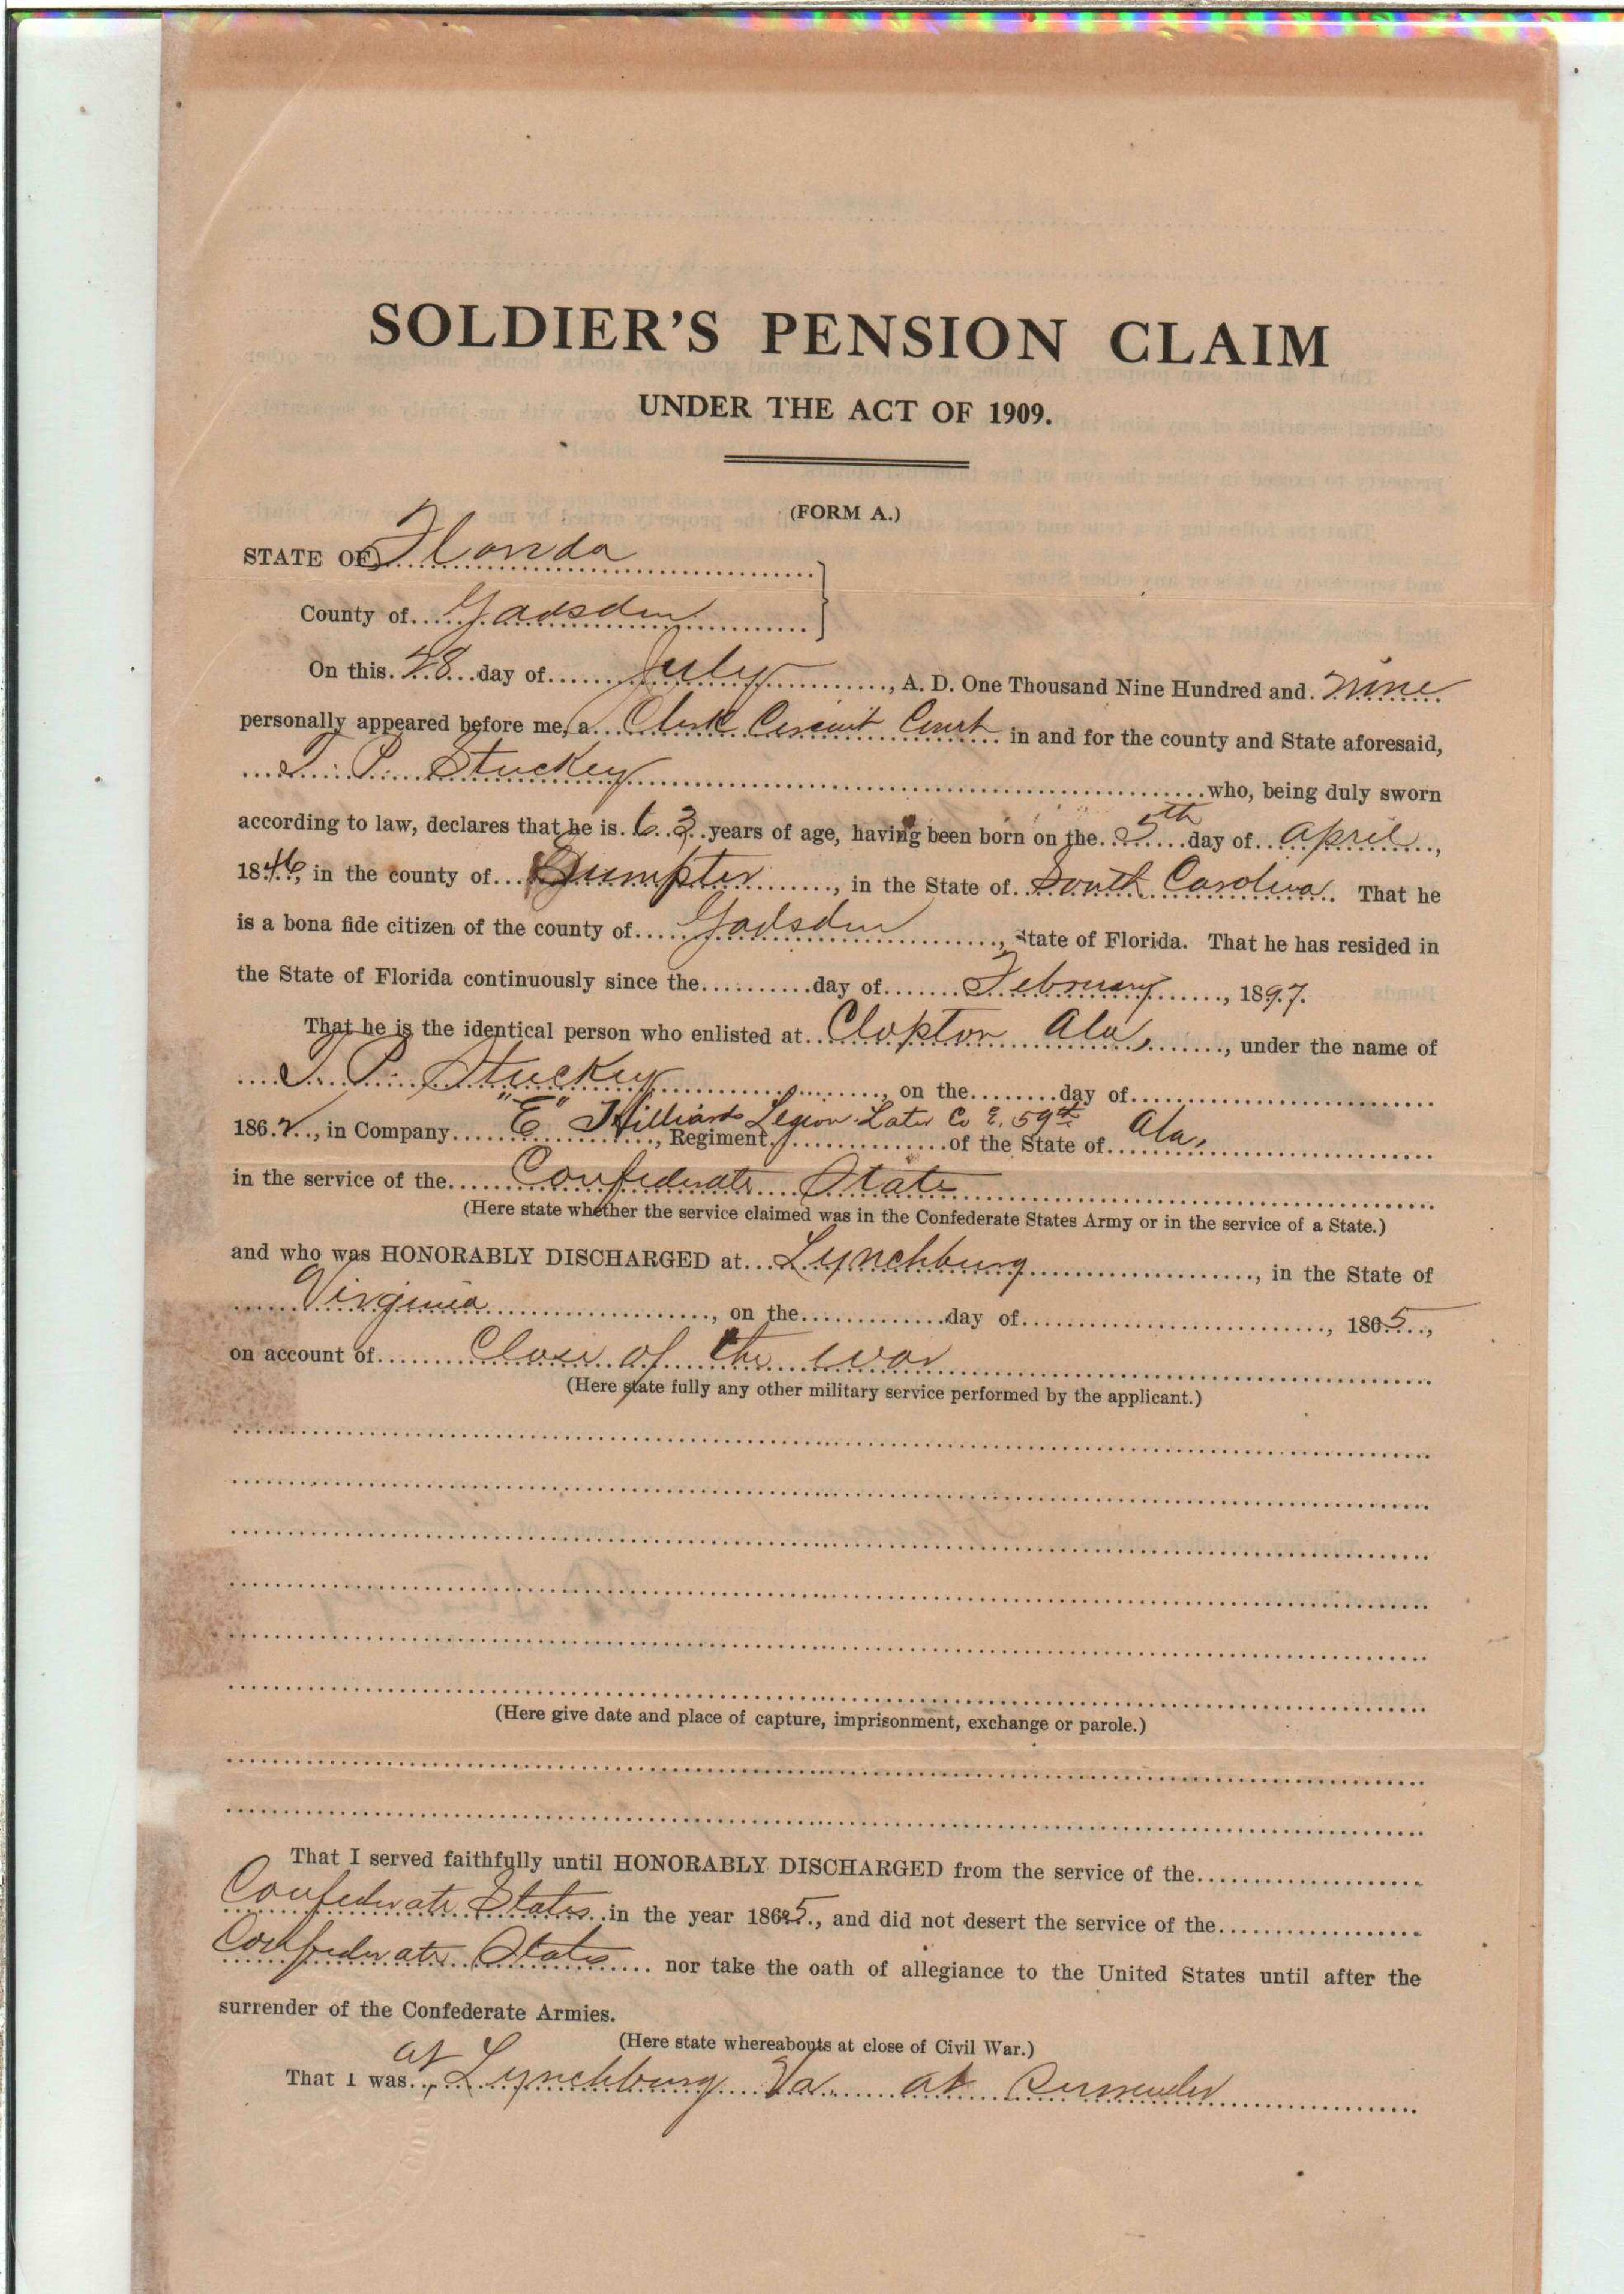 SOLDIER'S PENSION CLAIM
UNDER THE ACT OF 1909.
(FORM A.)
STATE OF Florida
County of Gadsden
On this 28 day of July, A. D. One Thousand Nine Hundred and nine
personally appeared before me, a Clerk Circuit Court in and for the county and State aforesaid,
T. P. Stuckey who, being duly sworn
according to law, declares that he is 63 years of age, having been born on the 5th day of April,
1846, in the county of Sumpter, in the State of South Carolina. That he
is a bona fide citizen of the county of Gadsden, State of Florida. That he has resided in
the State of Florida continuously since the day of February, 1897.
That he is the identical person who enlisted at Clopton Ala, under the name of
T. P. Stuckey, on the day of
1862, in Company "E" Hilliards Legion Later Co E, 59th, Regiment of the State of Ala.
in the service of the Confederate State
(Here state whether the service claimed was in the Confederate States Army or in the service of a State.)
and who was HONORABLY DISCHARGED at Lynchburg, in the State of
Virginia, on the day of, 1865,
on account of Close of the war
(Here state fully any other military service performed by the applicant.)
(Here give date and place of capture, imprisonment, exchange or parole.)
That I served faithfully until HONORABLY DISCHARGED from the service of the
Confederate States in the year 1865, and did not desert the service of the
Confederate States nor take the oath of allegiance to the United States until after the
surrender of the Confederate Armies.
(Here state whereabouts at close of Civil War.)
That I was at Lynchburg Va at Surrender